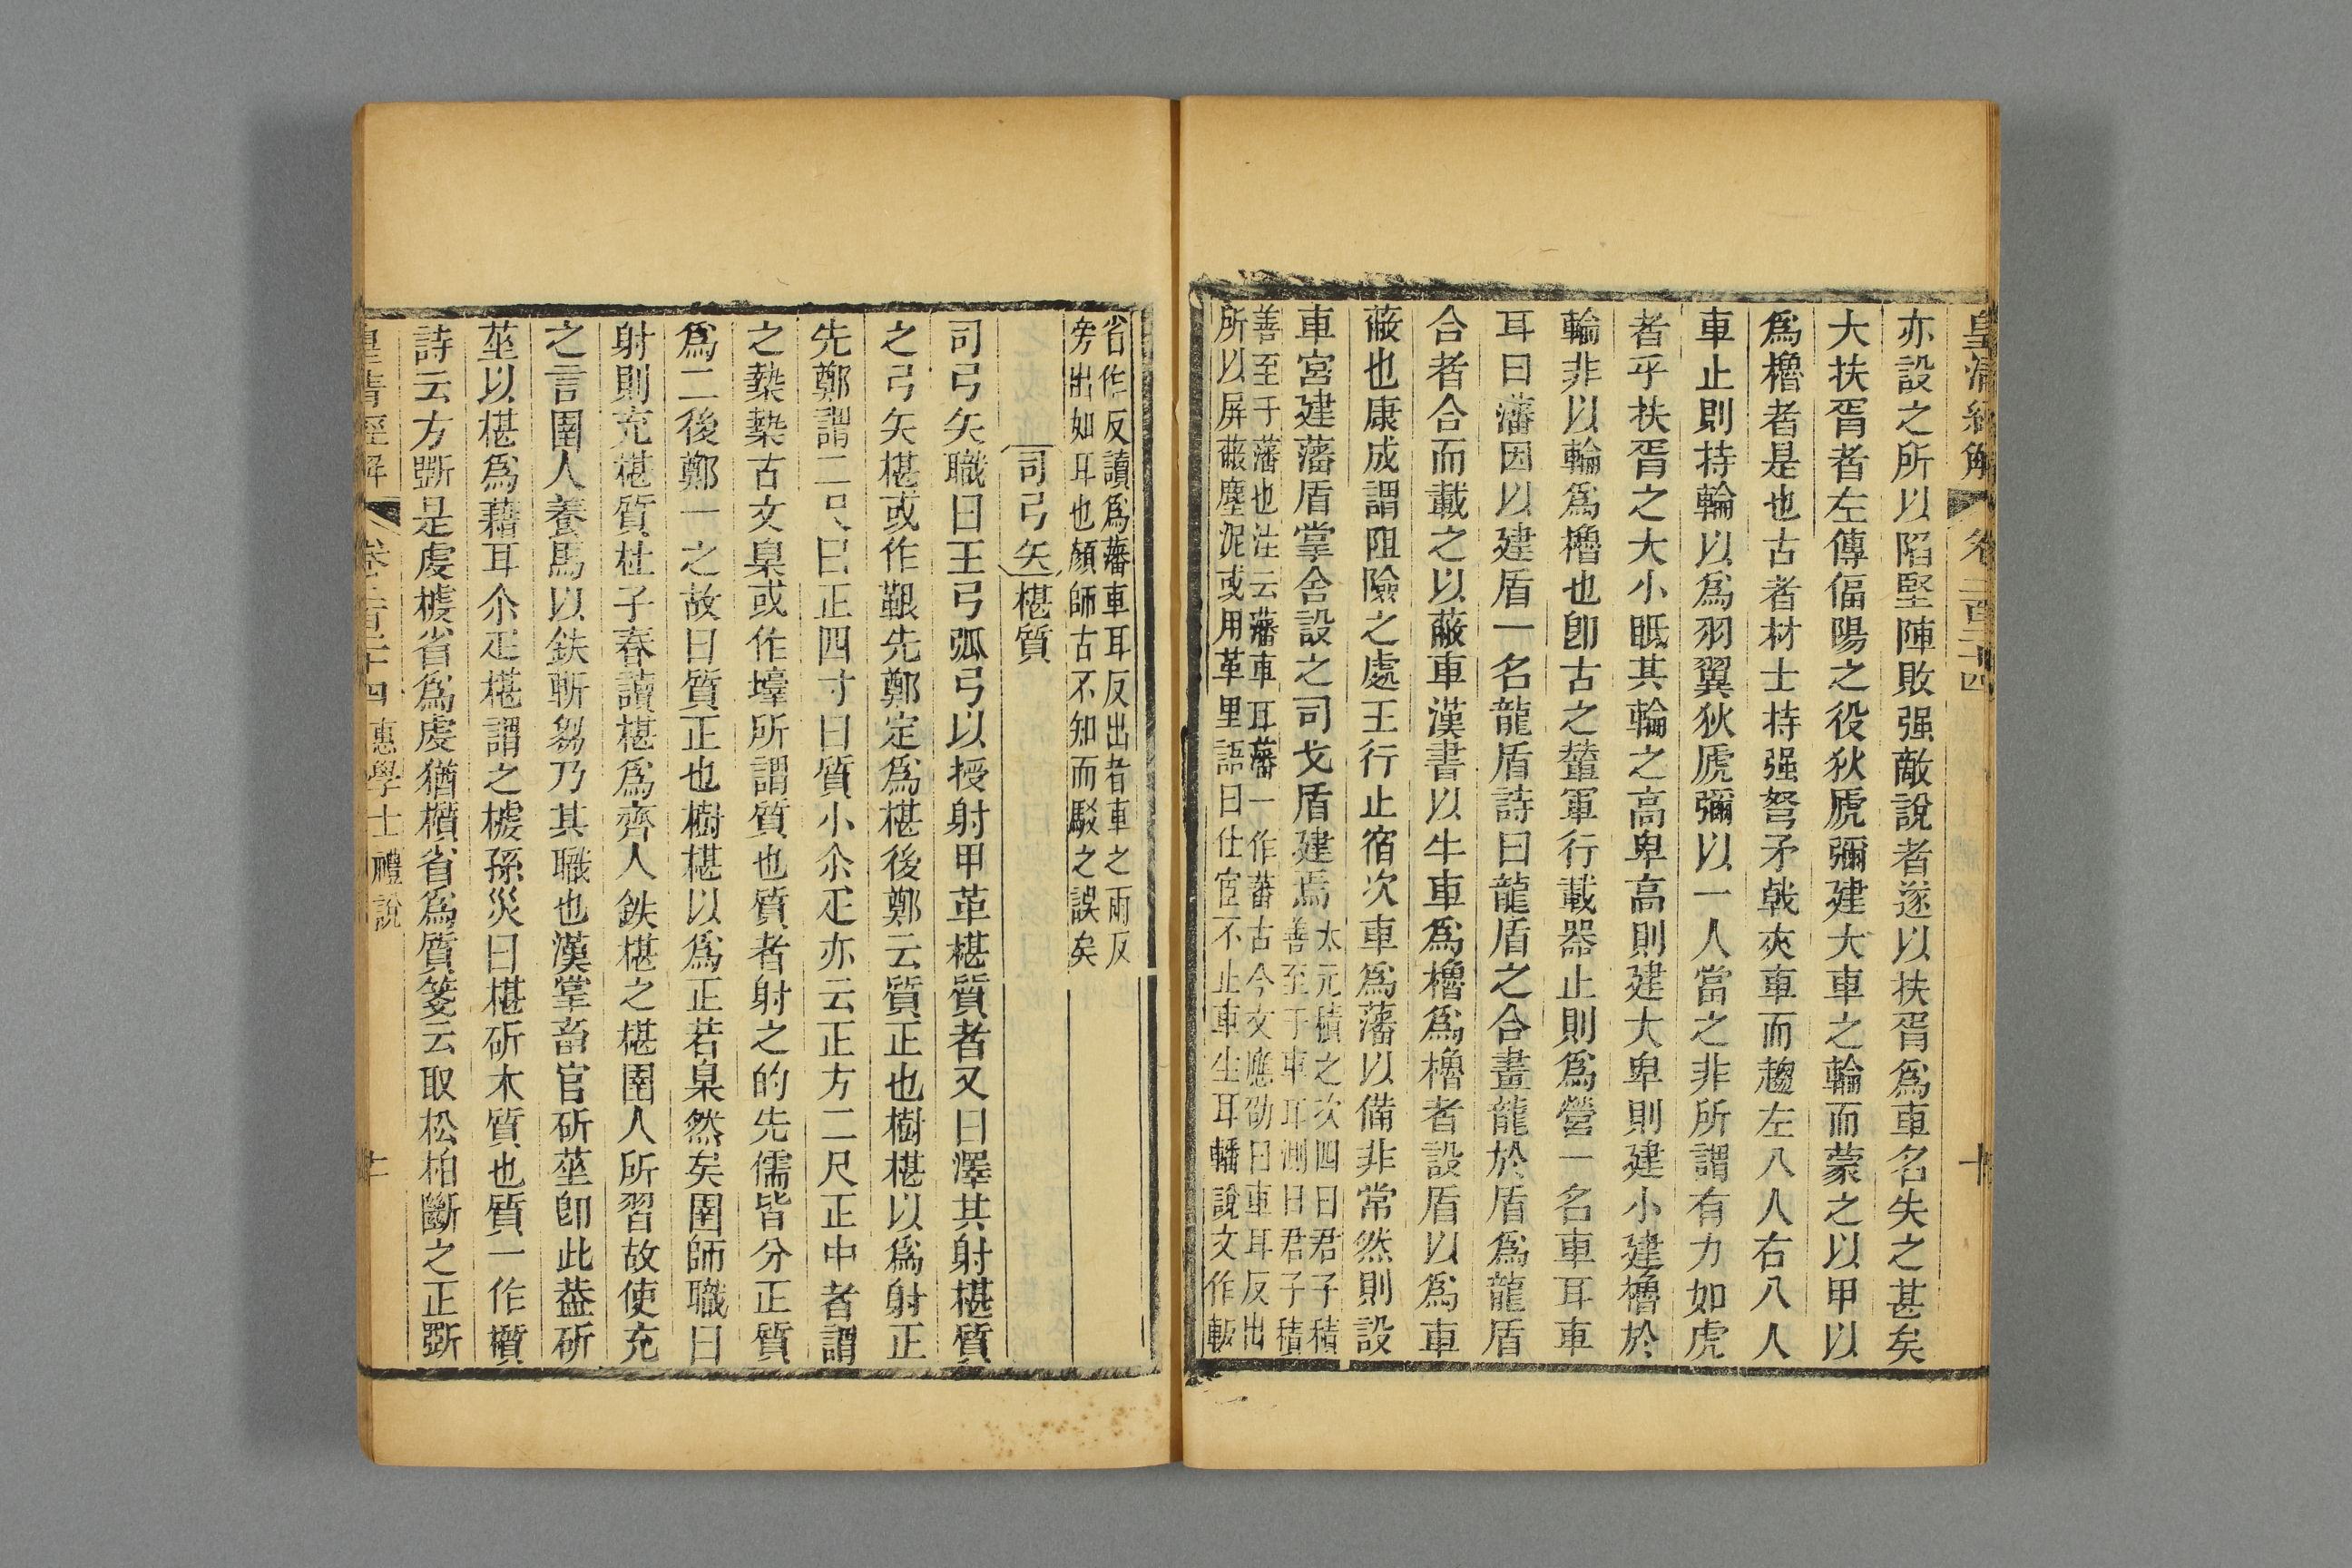 皇清經解 卷二百二十四 十
亦設之所以陷堅陣敗强敵說者遂以扶胥爲車名失之甚矣
大扶胥者左傳偪陽之役狄虒彌建大車之輪而蒙之以甲以
爲櫓者是也古者材士持强弩矛戟夾車而趨左八人右八人
車止則持輪以爲羽翼狄虒彌以一人當之非所謂有力如虎
者乎扶胥之大小眂其輪之高卑高則建大卑則建小建櫓於
輪非以輪爲櫓也卽古之輂軍行載器止則爲營一名車耳車
耳曰藩因以建盾一名龍盾詩曰龍盾之合畫龍於盾爲龍盾
合者合而載之以蔽車漢書以牛車爲櫓爲櫓者設盾以爲車
蔽也康成謂阻險之處王行止宿次車爲藩以備非常然則設
車宮建藩盾掌舍設之司戈盾建焉太元積之次四曰君子積
善至于車耳測曰君子積
善至于藩也注云藩車耳藩一作蕃古今文應劭曰車耳反出
所以屏蔽塵泥或用革里語曰仕宦不止車生耳轓說文作軬
省作反讀爲藩車耳反出者車之兩反
旁出如耳也顏師古不知而駁之誤矣
司弓矢椹質
司弓矢職曰王弓弧弓以授射甲革椹質者又曰澤其射椹質
之弓矢椹或作䵤先鄭定爲椹後鄭云質正也樹椹以爲射正
先鄭謂二尺曰正四寸曰質小尒疋亦云正方二尺正中者謂
之槷槷古文臬或作壕所謂質也質者射之的先儒皆分正質
爲二後鄭一之故曰質正也樹椹以爲正若臬然矣圉師職曰
射則充椹質杜子春讀椹爲齊人鈇椹之椹圉人所習故使充
之言圉人養馬以鈇斬芻乃其職也漢掌畜官斫莝卽此葢斫
莝以椹爲藉耳尒疋椹謂之榩孫炎曰椹斫木質也質一作櫍
詩云方斲是虔榩省爲虔猶櫍省爲質箋云取松柏斷之正斲
皇清經解 卷二百二十四惠學士禮說 十一